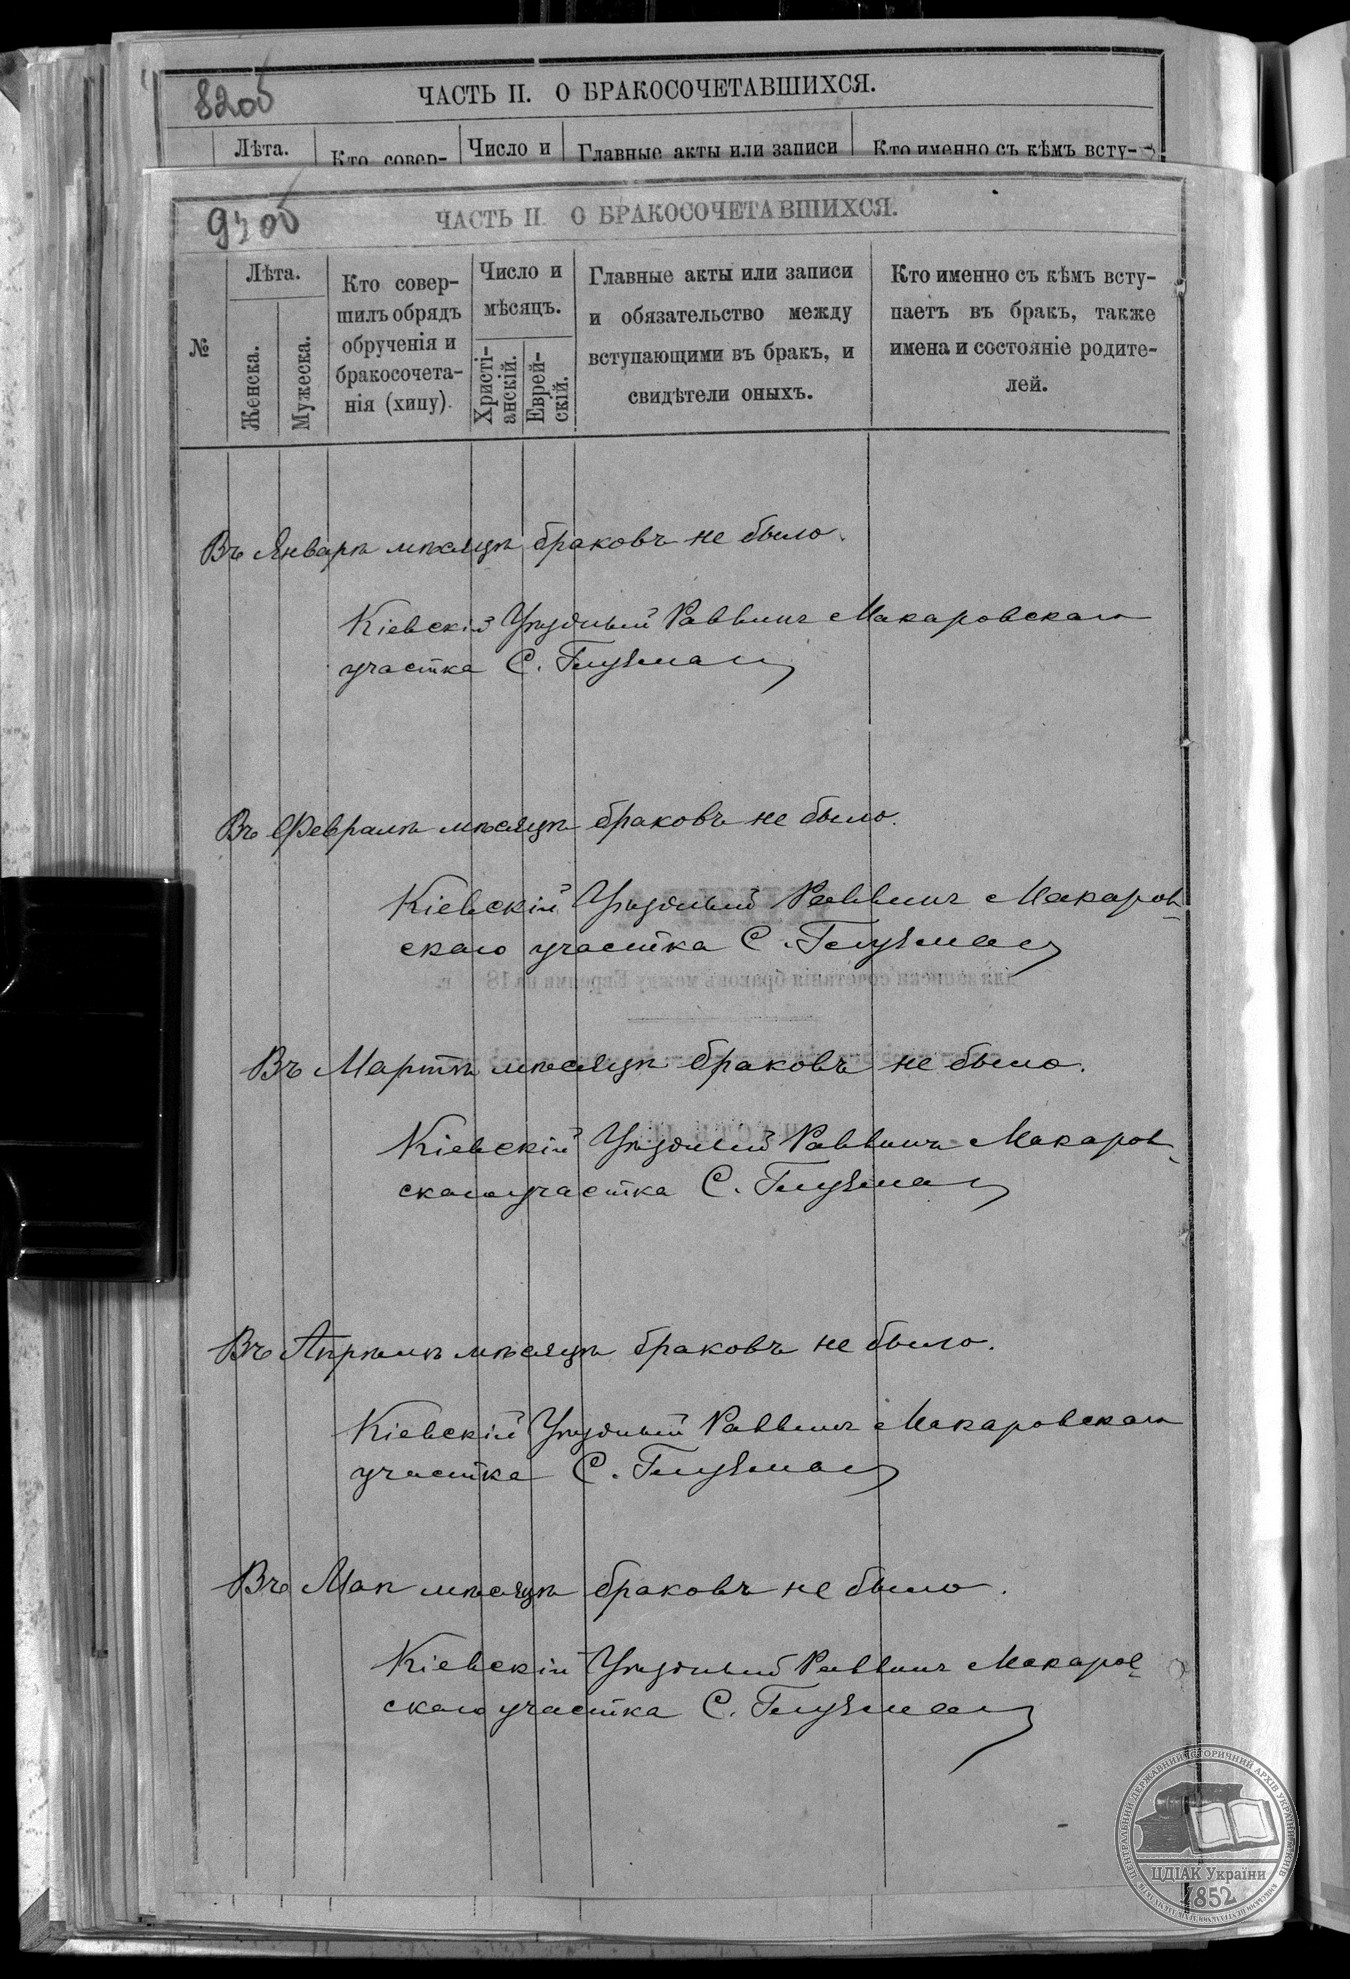 820об
ЧАСТЬ II. О БРАКОСОЧЕТАВШИХСЯ.
Лѣта.
Кто совер-
Число и
Главные акты или записи
Кто именно съ кѣмъ всту-
ЧАСТЬ II. О БРАКОСОЧЕТАВШИХСЯ.
№
Лѣта.
Женска.
Мужеска.
Кто совер-
шилъ обрядъ
обрученія и
бракосочета-
нія (хипу).
Число и
мѣсяцъ.
Христі-
анскій.
Еврей-
скій.
Главные акты или записи
и обязательство между
вступающими въ бракъ, и
свидѣтели оныхъ.
Кто именно съ кѣмъ всту-
паетъ въ бракъ, также
имена и состояніе родите-
лей.
Въ Январѣ мѣсяцѣ браковъ не было.
Кіевскій Уѣздный Раввинъ Макаровскаго
участка С. Глузман
Въ Февралѣ мѣсяцѣ браковъ не было.
Кіевскій Уѣздный Раввинъ Макаров-
скаго участка С. Глузман
Для записки сочетанія браковъ между Евреями на 18 г.
Въ Мартѣ мѣсяцѣ браковъ не было.
Кіевскій Уѣздный Раввинъ Макаров-
скаго участка С. Глузман
Въ Апрѣлѣ мѣсяцѣ браковъ не было.
Кіевскій Уѣздный Раввинъ Макаровскаго
участка С. Глузман
Въ Маѣ мѣсяцѣ браковъ не было.
Кіевскій Уѣздный Раввинъ Макаров-
скаго участка С. Глузман
ЦЕНТРАЛЬНИЙ ДЕРЖАВНИЙ ІСТОРИЧНИЙ АРХІВ УКРАЇНИ, М. КИЇВ
ЦДІАК України
1852